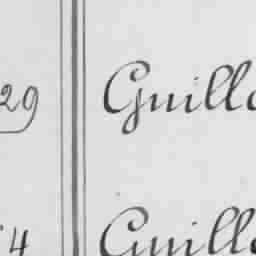 29 Guillo
4 Guillo